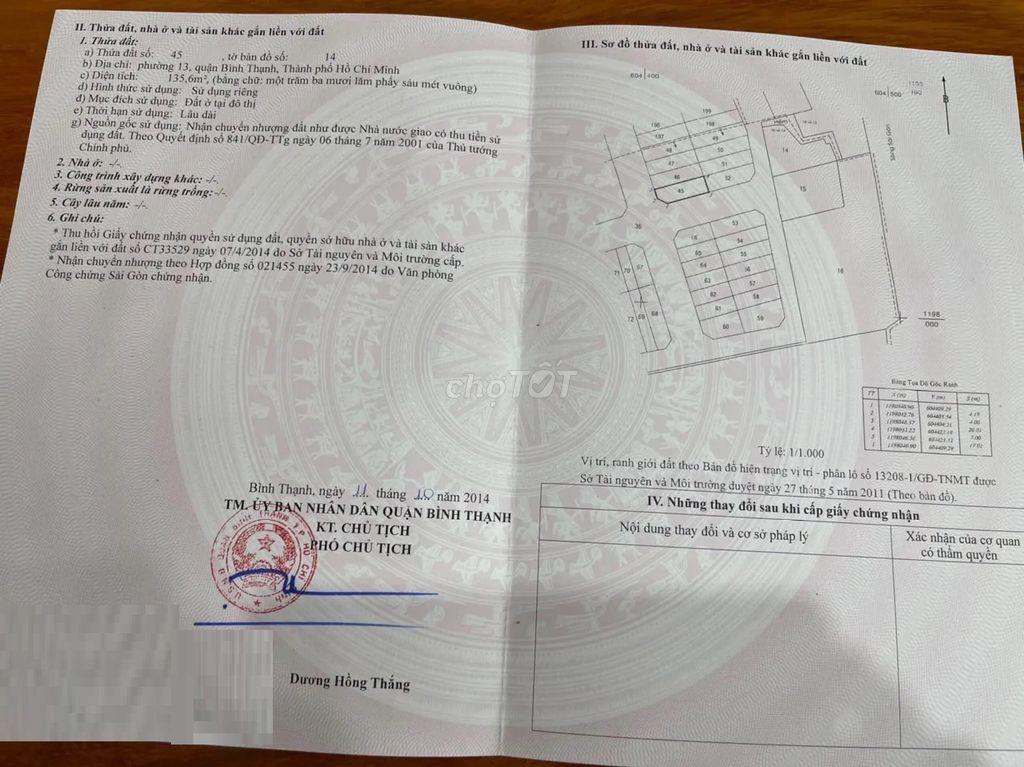 II. Thửa đất, nhà ở và tài sản khác gắn liền với đất
1. Thửa đất:
a) Thửa đất số: 45 , tờ bản đồ số: 14
b) Địa chỉ: phường 13, quận Bình Thạnh, Thành phố Hồ Chí Minh
c) Diện tích: 135,6m², (bằng chữ: một trăm ba mươi lăm phẩy sáu mét vuông)
d) Hình thức sử dụng: Sử dụng riêng
đ) Mục đích sử dụng: Đất ở tại đô thị
e) Thời hạn sử dụng: Lâu dài
g) Nguồn gốc sử dụng: Nhận chuyển nhượng đất như được Nhà nước giao có thu tiền sử
dụng đất. Theo Quyết định số 841/QĐ-TTg ngày 06 tháng 7 năm 2001 của Thủ tướng
Chính phủ.
2. Nhà ở: -/-.
3. Công trình xây dựng khác: -/-.
4. Rừng sản xuất là rừng trồng:-/-.
5. Cây lâu năm: -/-.
6. Ghi chú:
* Thu hồi Giấy chứng nhận quyền sử dụng đất, quyền sở hữu nhà ở và tài sản khác
gắn liền với đất số CT33529 ngày 07/4/2014 do Sở Tài nguyên và Môi trường cấp.
* Nhận chuyển nhượng theo Hợp đồng số 021455 ngày 23/9/2014 do Văn phòng
Công chứng Sài Gòn chứng nhận.
Bình Thạnh, ngày 11 tháng 10 năm 2014
TM. ỦY BAN NHÂN DÂN QUẬN BÌNH THẠNH
KT. CHỦ TỊCH
PHÓ CHỦ TỊCH
Dương Hồng Thắng
chợTỐT
III. Sơ đồ thửa đất, nhà ở và tài sản khác gắn liền với đất
604 400
604 500
B
Sông Sài Gòn
196
199
197
198
48
49
47
50
46
51
45
52
14
15
36
53
54
65
64
56
63
57
62
58
61
59
60
71 70
72 69 68
16
1198
000
Bảng Tọa Độ Góc Ranh
TT X (m) Y (m) S (m)
Tỷ lệ: 1/1.000
Vị trí, ranh giới đất theo Bản đồ hiện trạng vị trí - phân lô số 13208-1/GĐ-TNMT được
Sở Tài nguyên và Môi trường duyệt ngày 27 tháng 5 năm 2011 (Theo bản đồ).
IV. Những thay đổi sau khi cấp giấy chứng nhận
Nội dung thay đổi và cơ sở pháp lý
Xác nhận của cơ quan
có thẩm quyền